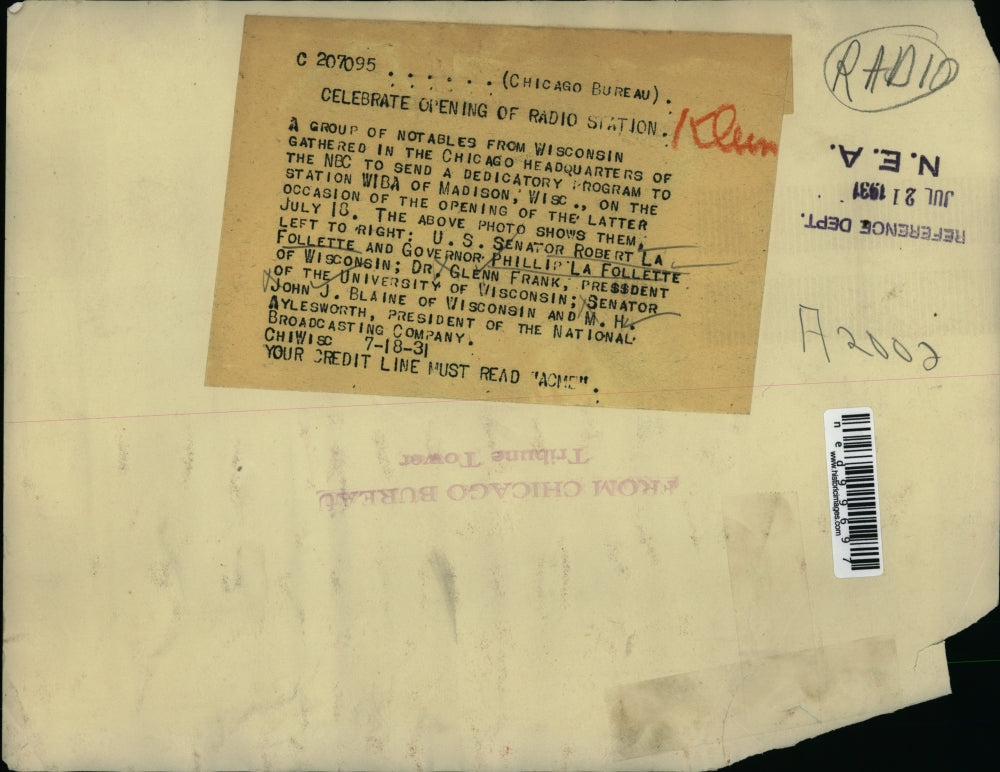 C 207095 . . . . . . (CHICAGO BUREAU).
CELEBRATE OPENING OF RADIO STATION.
A GROUP OF NOTABLES FROM WISCONSIN
GATHERED IN THE CHICAGO HEADQUARTERS OF
THE NBC TO SEND A DEDICATORY PROGRAM TO
STATION WIBA OF MADISON, WISC., ON THE
OCCASION OF THE OPENING OF THE LATTER
JULY 18. THE ABOVE PHOTO SHOWS THEM,
LEFT TO RIGHT: U.S. SENATOR ROBERT LA
FOLLETTE AND GOVERNOR PHILLIP LA FOLLETTE
OF WISCONSIN; DR. GLENN FRANK, PRESSDENT
OF THE UNIVERSITY OF WISCONSIN; SENATOR
JOHN J. BLAINE OF WISCONSIN AND M. H.
AYLESWORTH, PRESIDENT OF THE NATIONAL
BROADCASTING COMPANY.
CHIWISC 7-18-31
YOUR CREDIT LINE MUST READ "ACME".
Klein
RADIO
N.E.A.
JUL 21 1931
REFERENCE DEPT.
A2002
ned99697
www.historicimages.com
FROM CHICAGO BUREAU
Tribune Tower